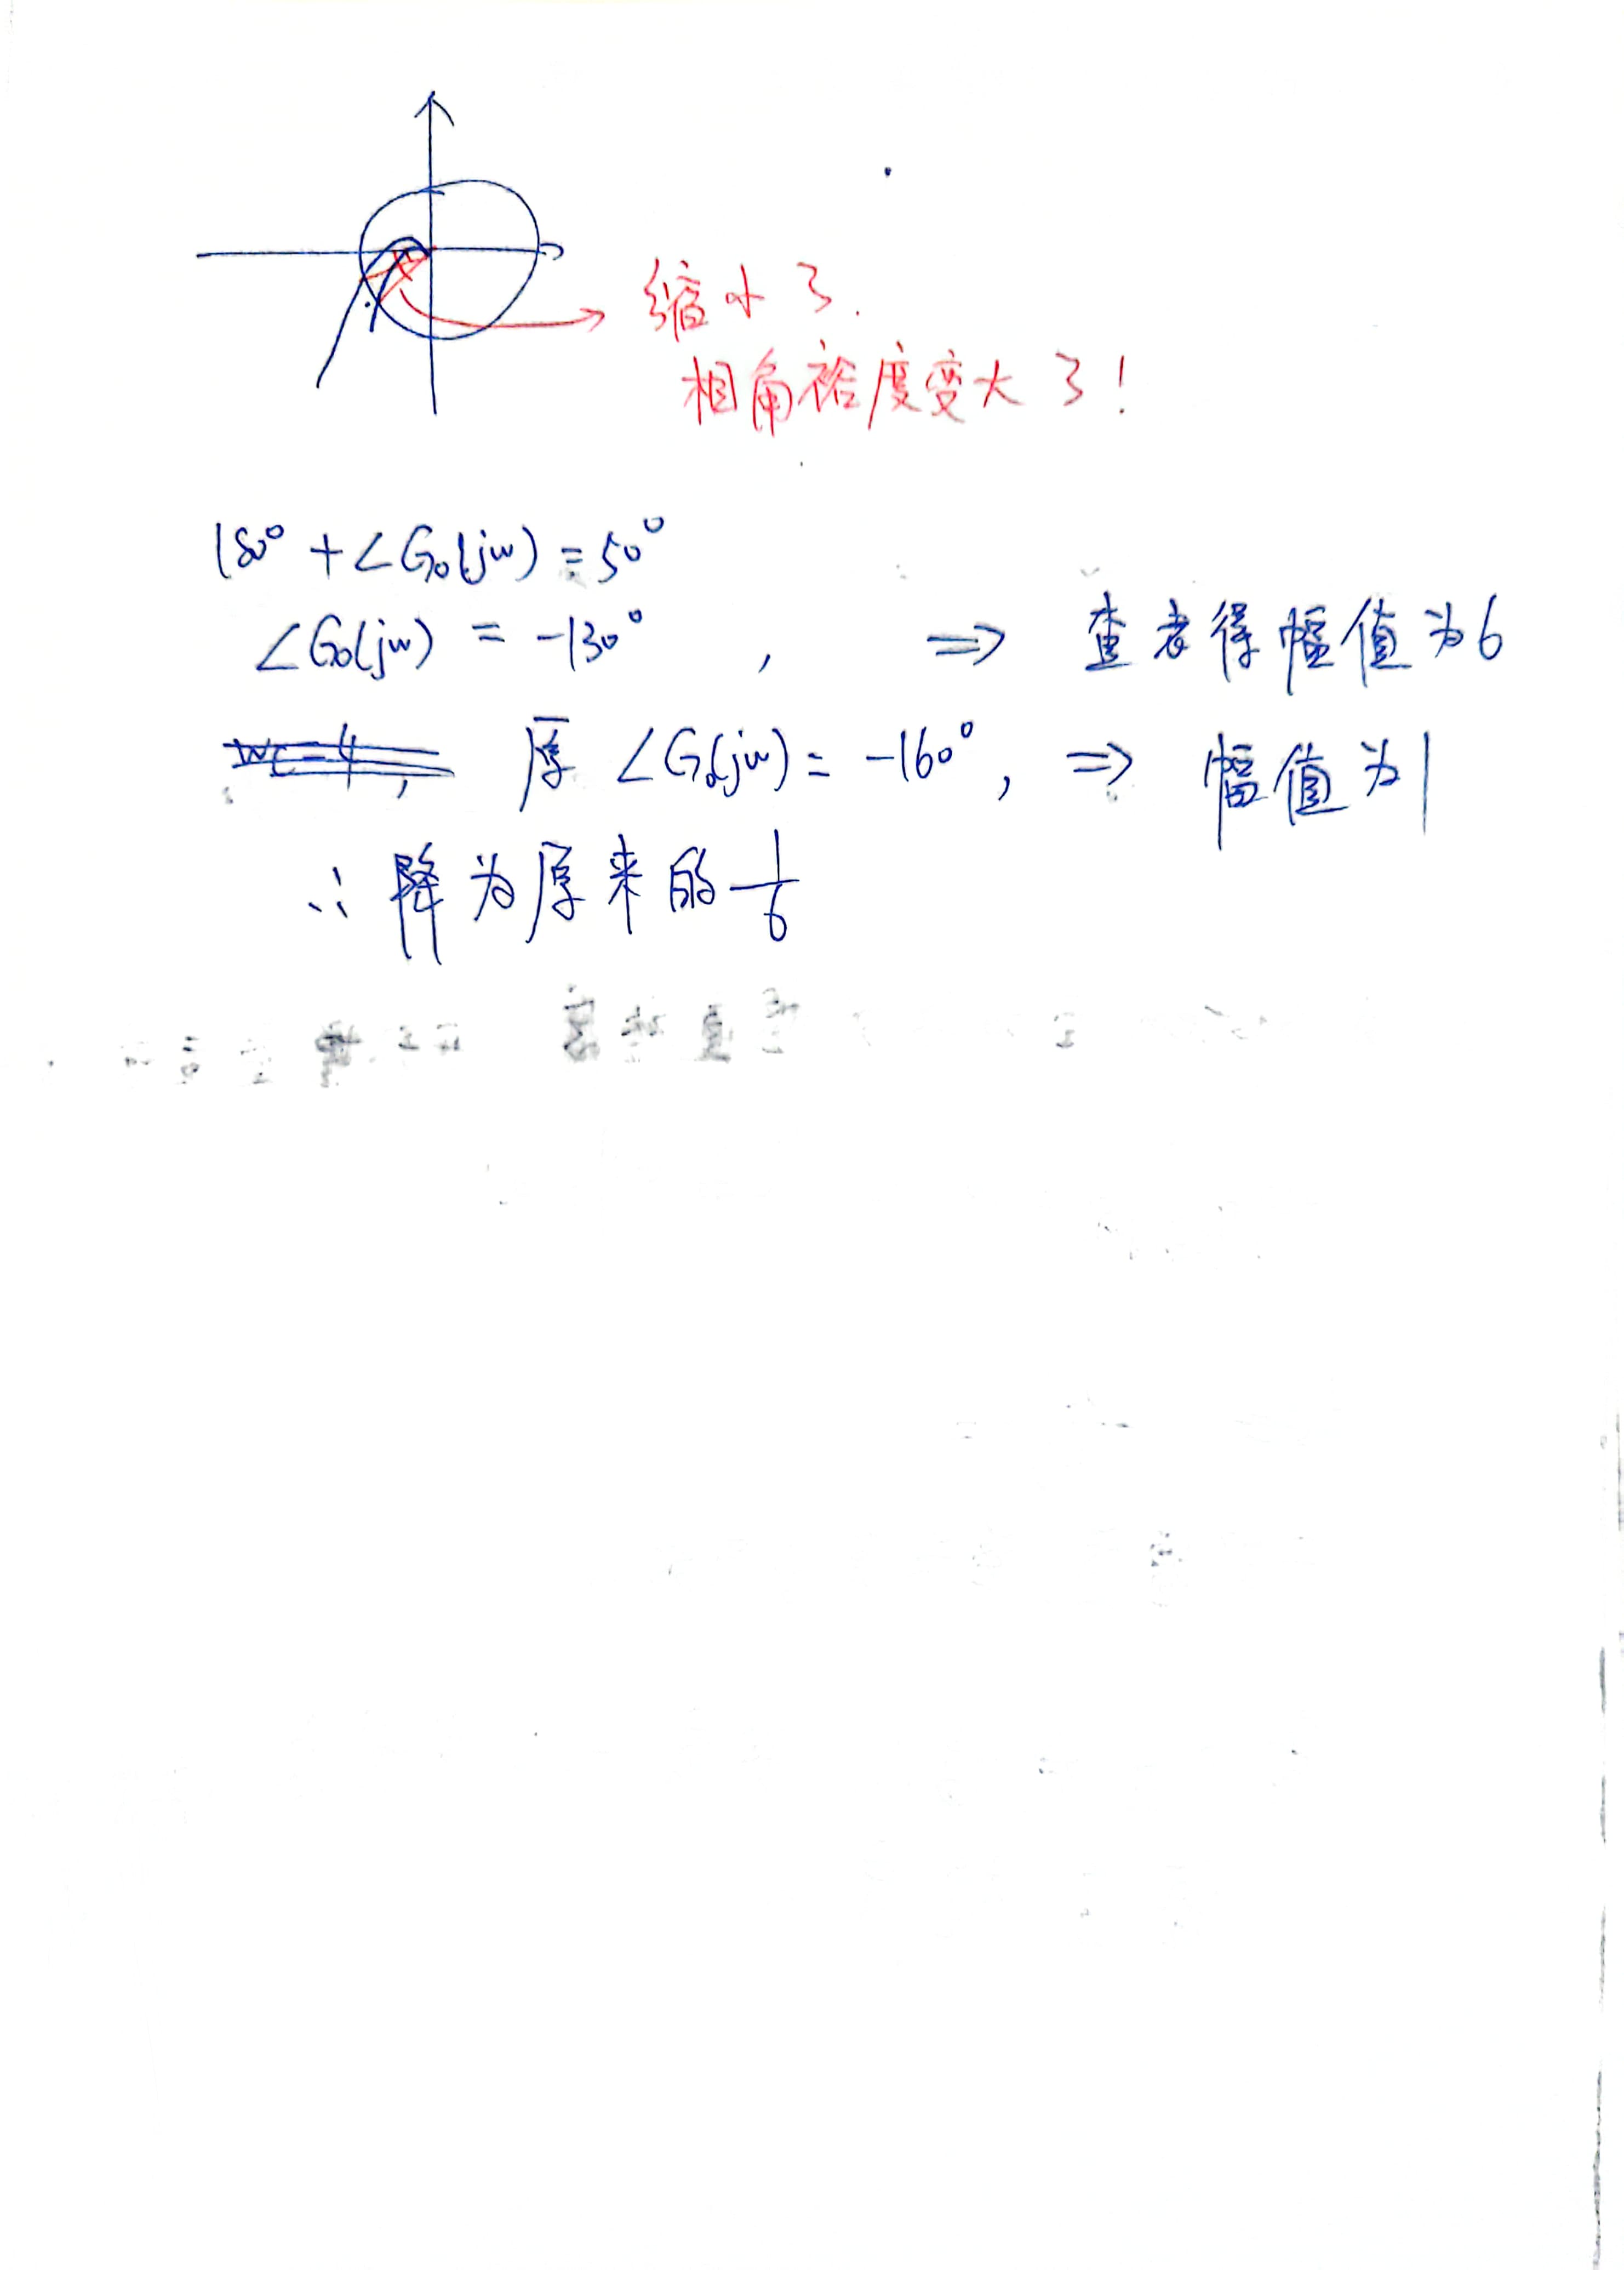 缩小了.
相角裕度变大了!
180° + ∠G₀(jw) = 50°
∠G₀(jw) = -130° , ⇒ 查表得幅值为6
原 ∠G₀(jw) = -160° , ⇒ 幅值为1
∴ 降为原来的 1/6